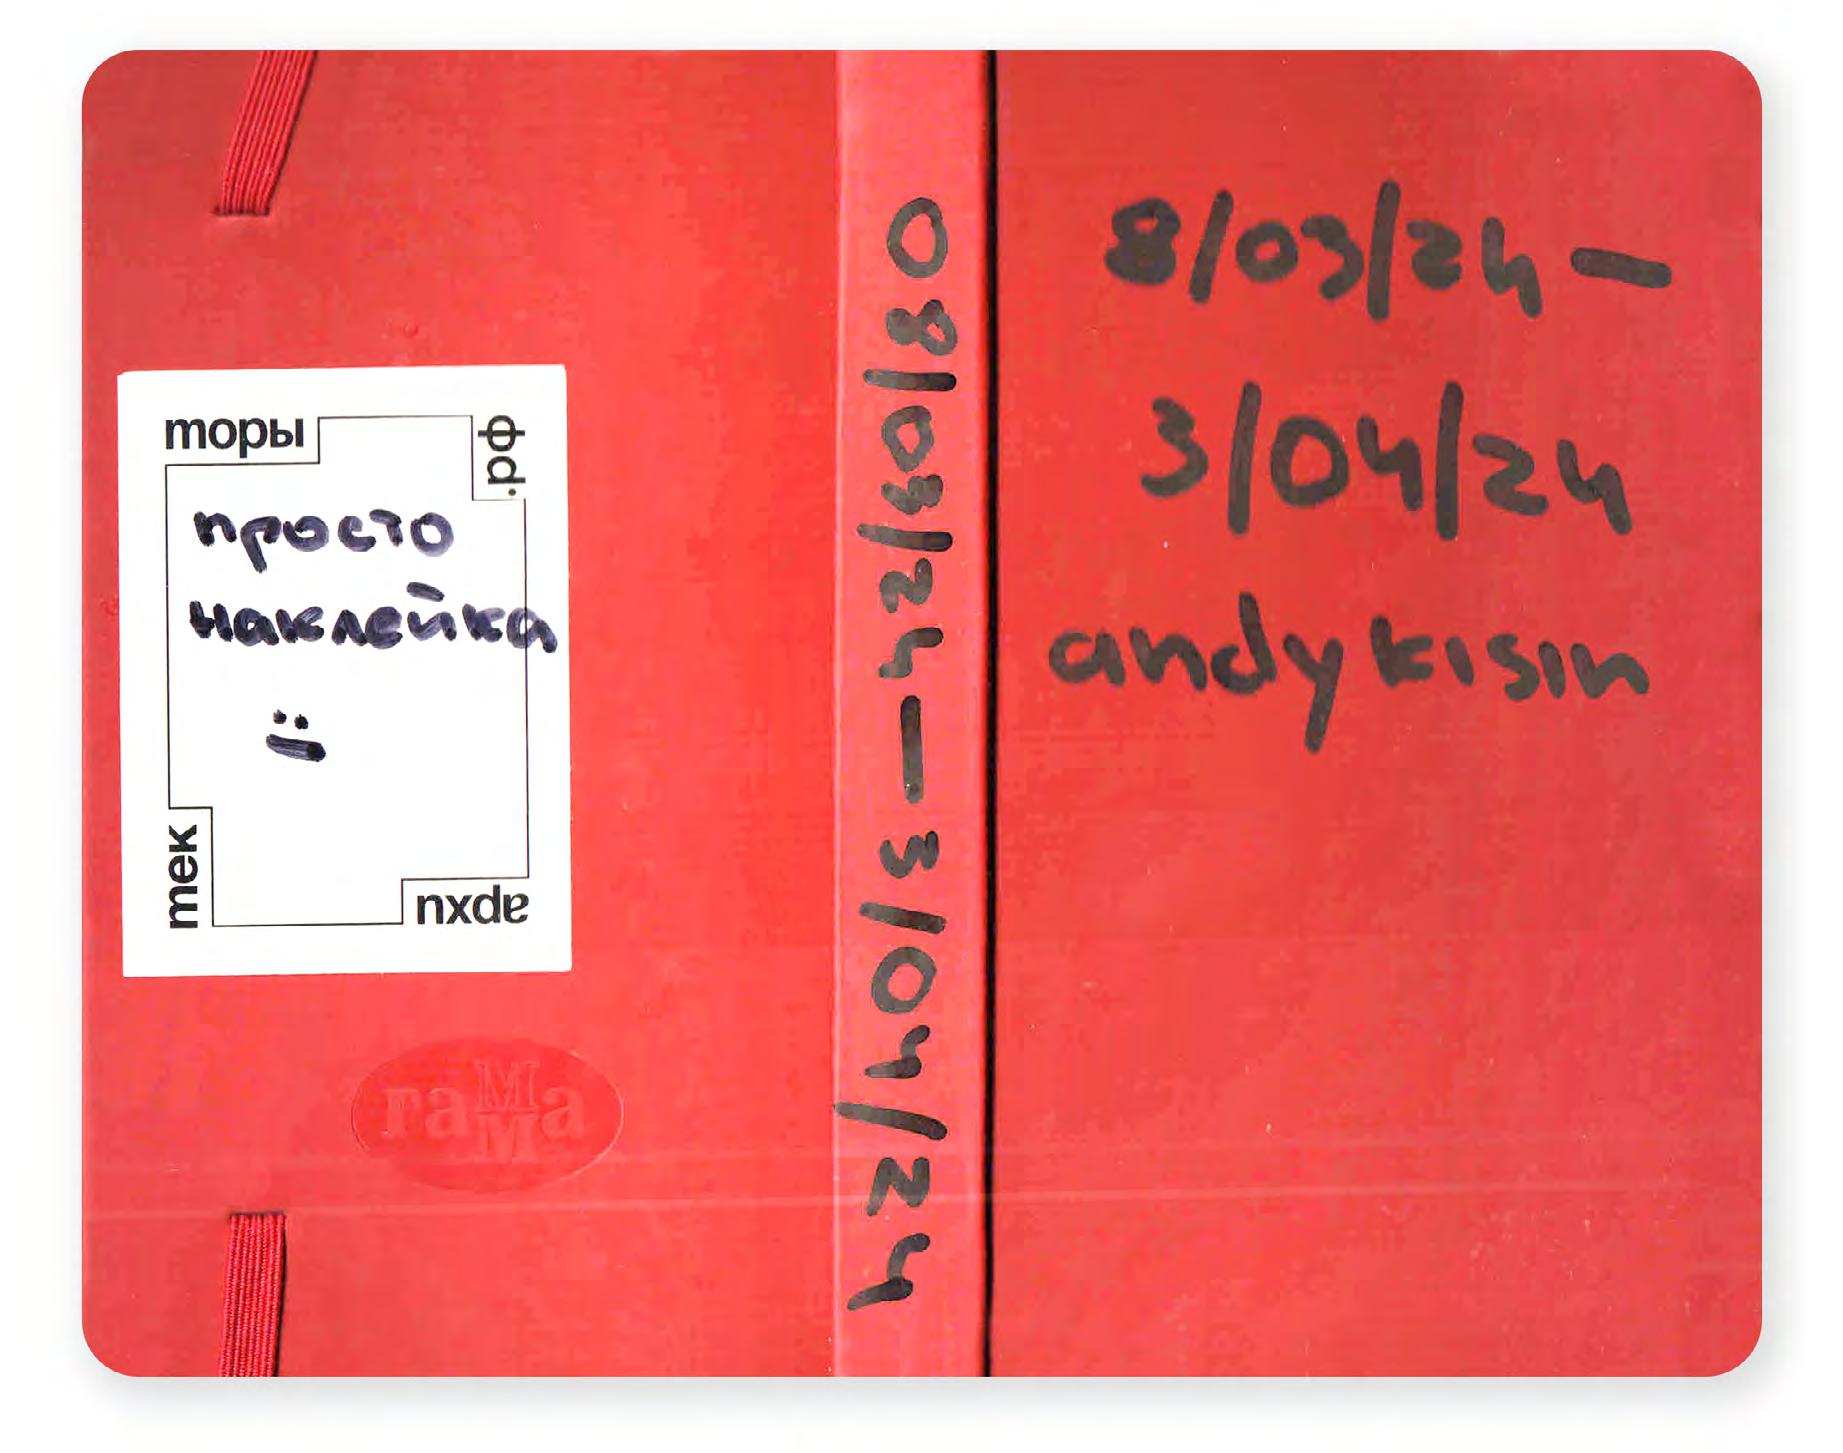 торы
.рф
просто
наклейка
:)
тек
архи
гамма
08/03/24 — 3/04/24
8/03/24 —
3/04/24
andykisin